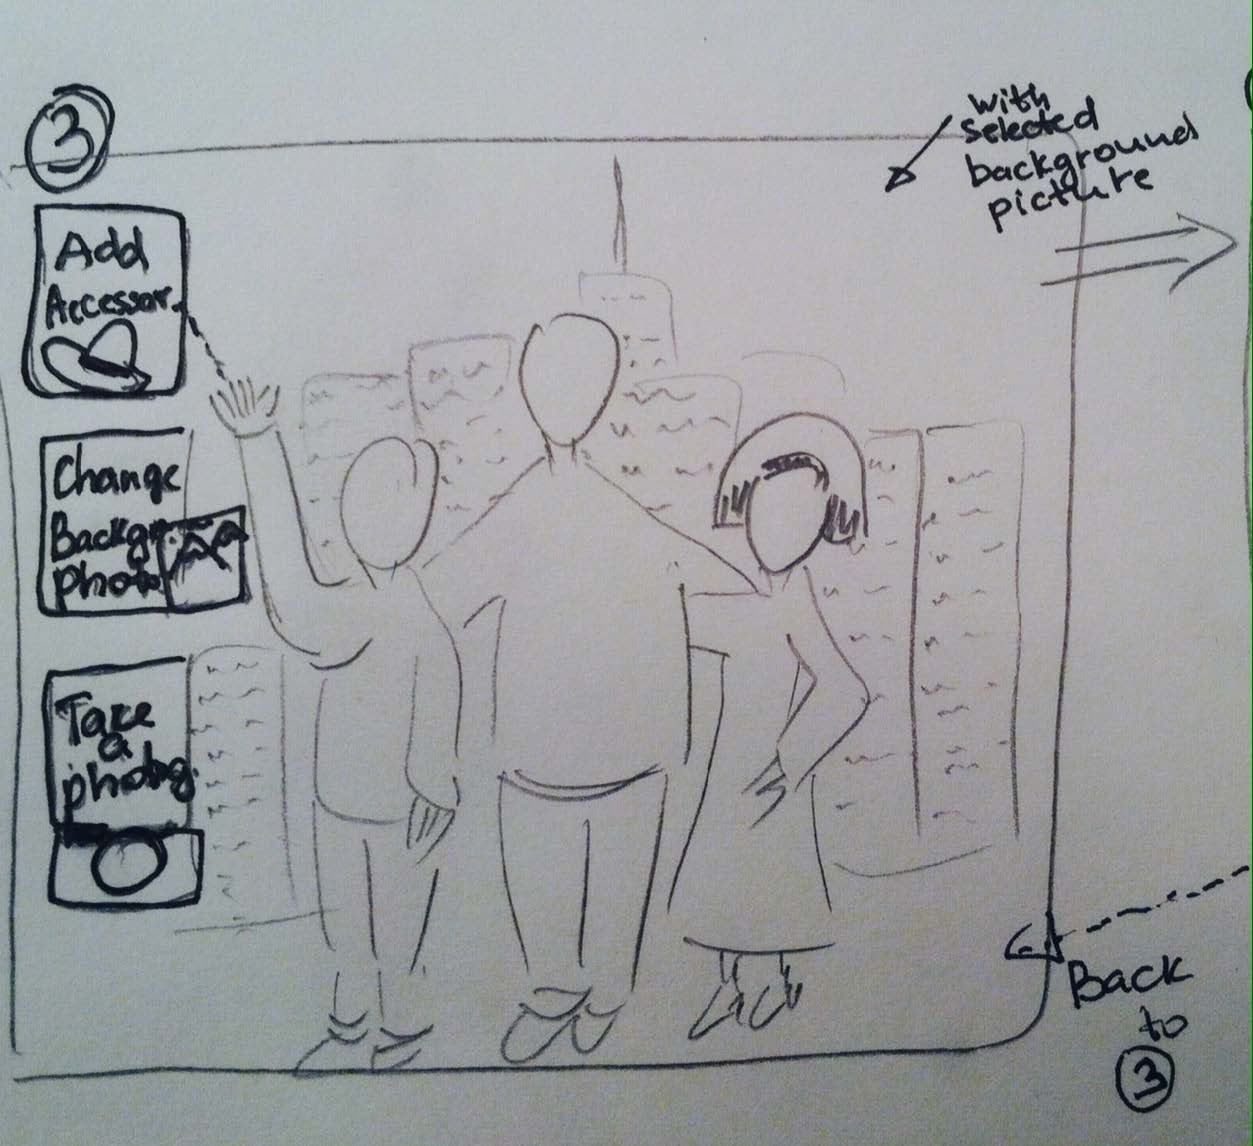 3
with
selected
background
picture
Add
Accessor.
Change
Backgr.
photo
Take
a
photog.
Back
to
3